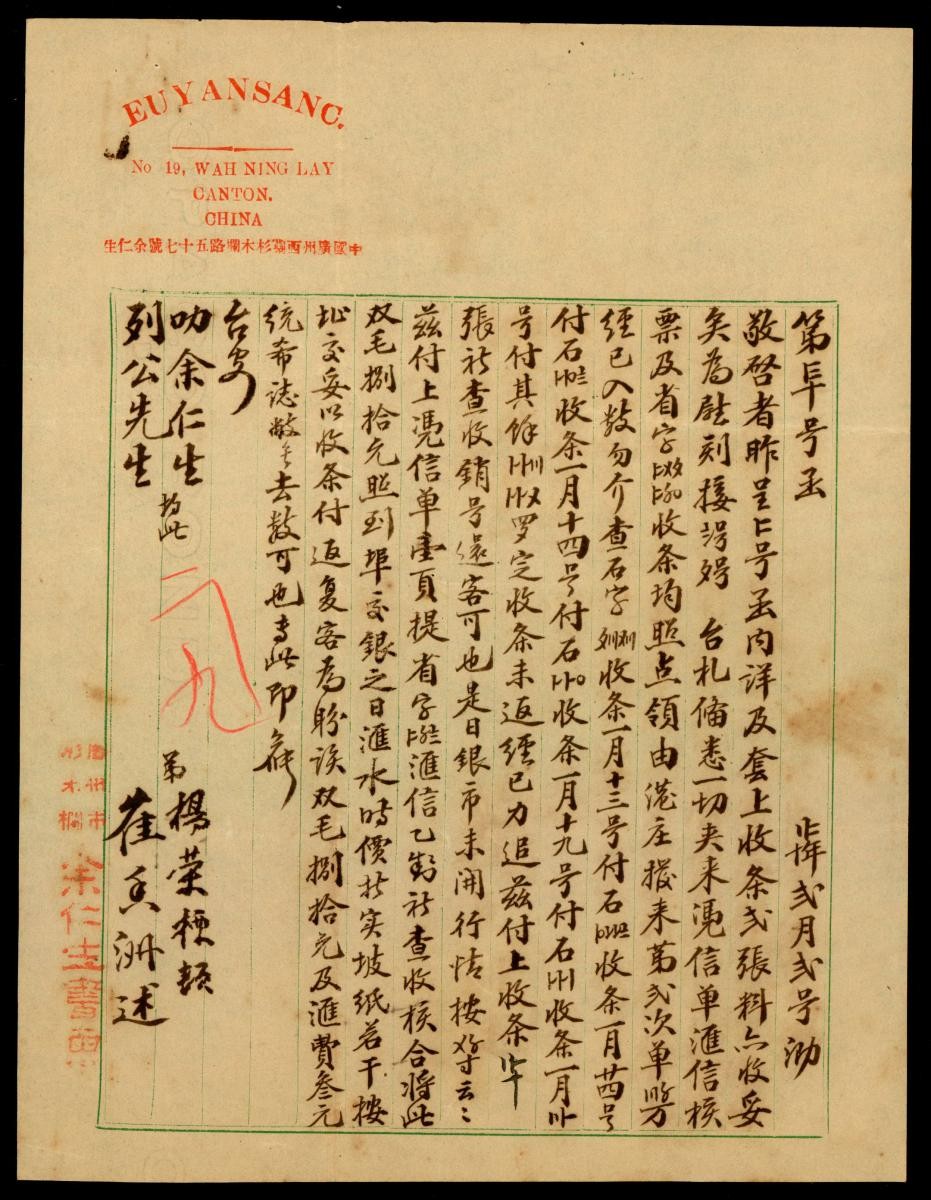 EUYANSANG.
No 19, WAH NING LAY
CANTON.
CHINA
中國廣州西關杉木欄路五十七號余仁生
第 号函 年弍月弍号泐
敬啓者昨呈 号函內詳及套上收条弍張料亦收妥
矣为慰刻接 台札俻悉一切夹来憑信单滙信核
票及省字 收条均照点領由港庄撥来第弍次单
經已入数勿介查石字 收条一月十三号付石 收条一月廿四号
付石 收条一月十四号付石 收条一月十九号付石 收条一月
号付其餘 罗定收条未返經已力追兹付上收条
張祈查收銷号還客可也是日銀市未開行情按 云云
兹付上憑信单壹頁提省字 滙信乙封祈查收核合將此
双毛捌拾元照到埠交銀之日滙水時價折实坡紙若干按
址交妥以收条付返复客为盼该双毛捌拾元及滙費叁元
統希誌敝 去数可也专此即候
台安
叻余仁生 均此
列公先生
二九
弟 楊荣 崔 洲 述
廣州市
杉木欄
余仁生書柬